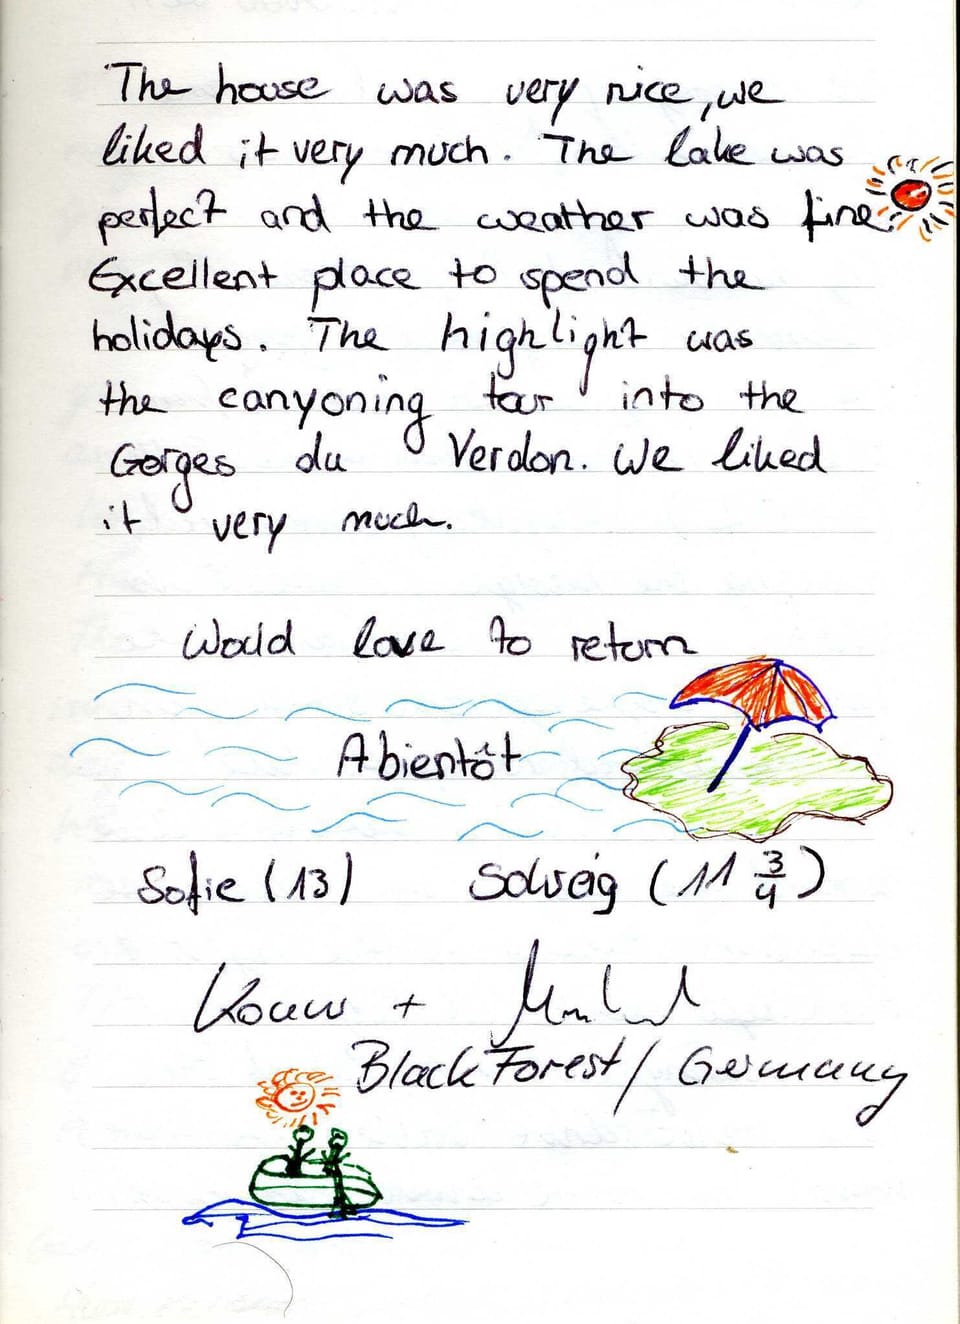 The house was very nice, we
liked it very much. The lake was
perfect and the weather was fine.
Excellent place to spend the
holidays. The highlight was
the canyoning tour into the
Gorges du Verdon. We liked
it very much.
Would love to return
A bientôt
Sofie (13) Solveig (11 3/4)
+
Black Forest / Germany